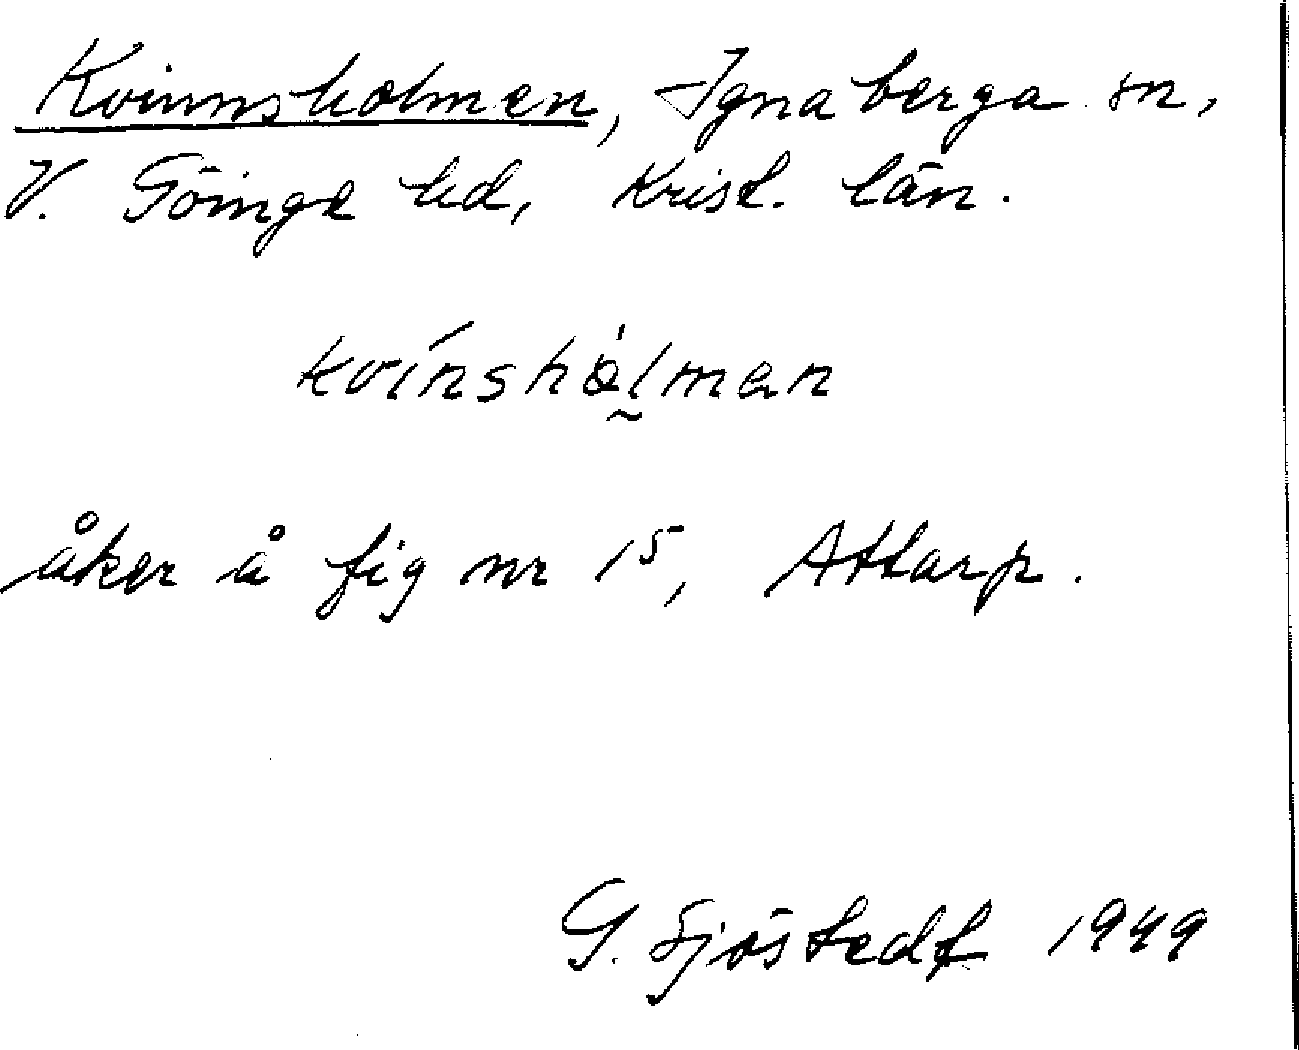 Kvinnsholmen, Ignaberga sn,
V. Göinge hd, Krist. län.
kvinshålman
åker å fig nr 15, Attarp.
G. Sjöstedt 1949